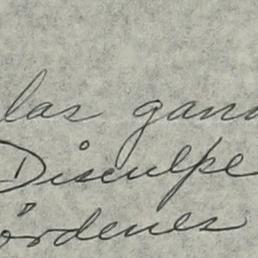 las gana
Disculpe
órdenes